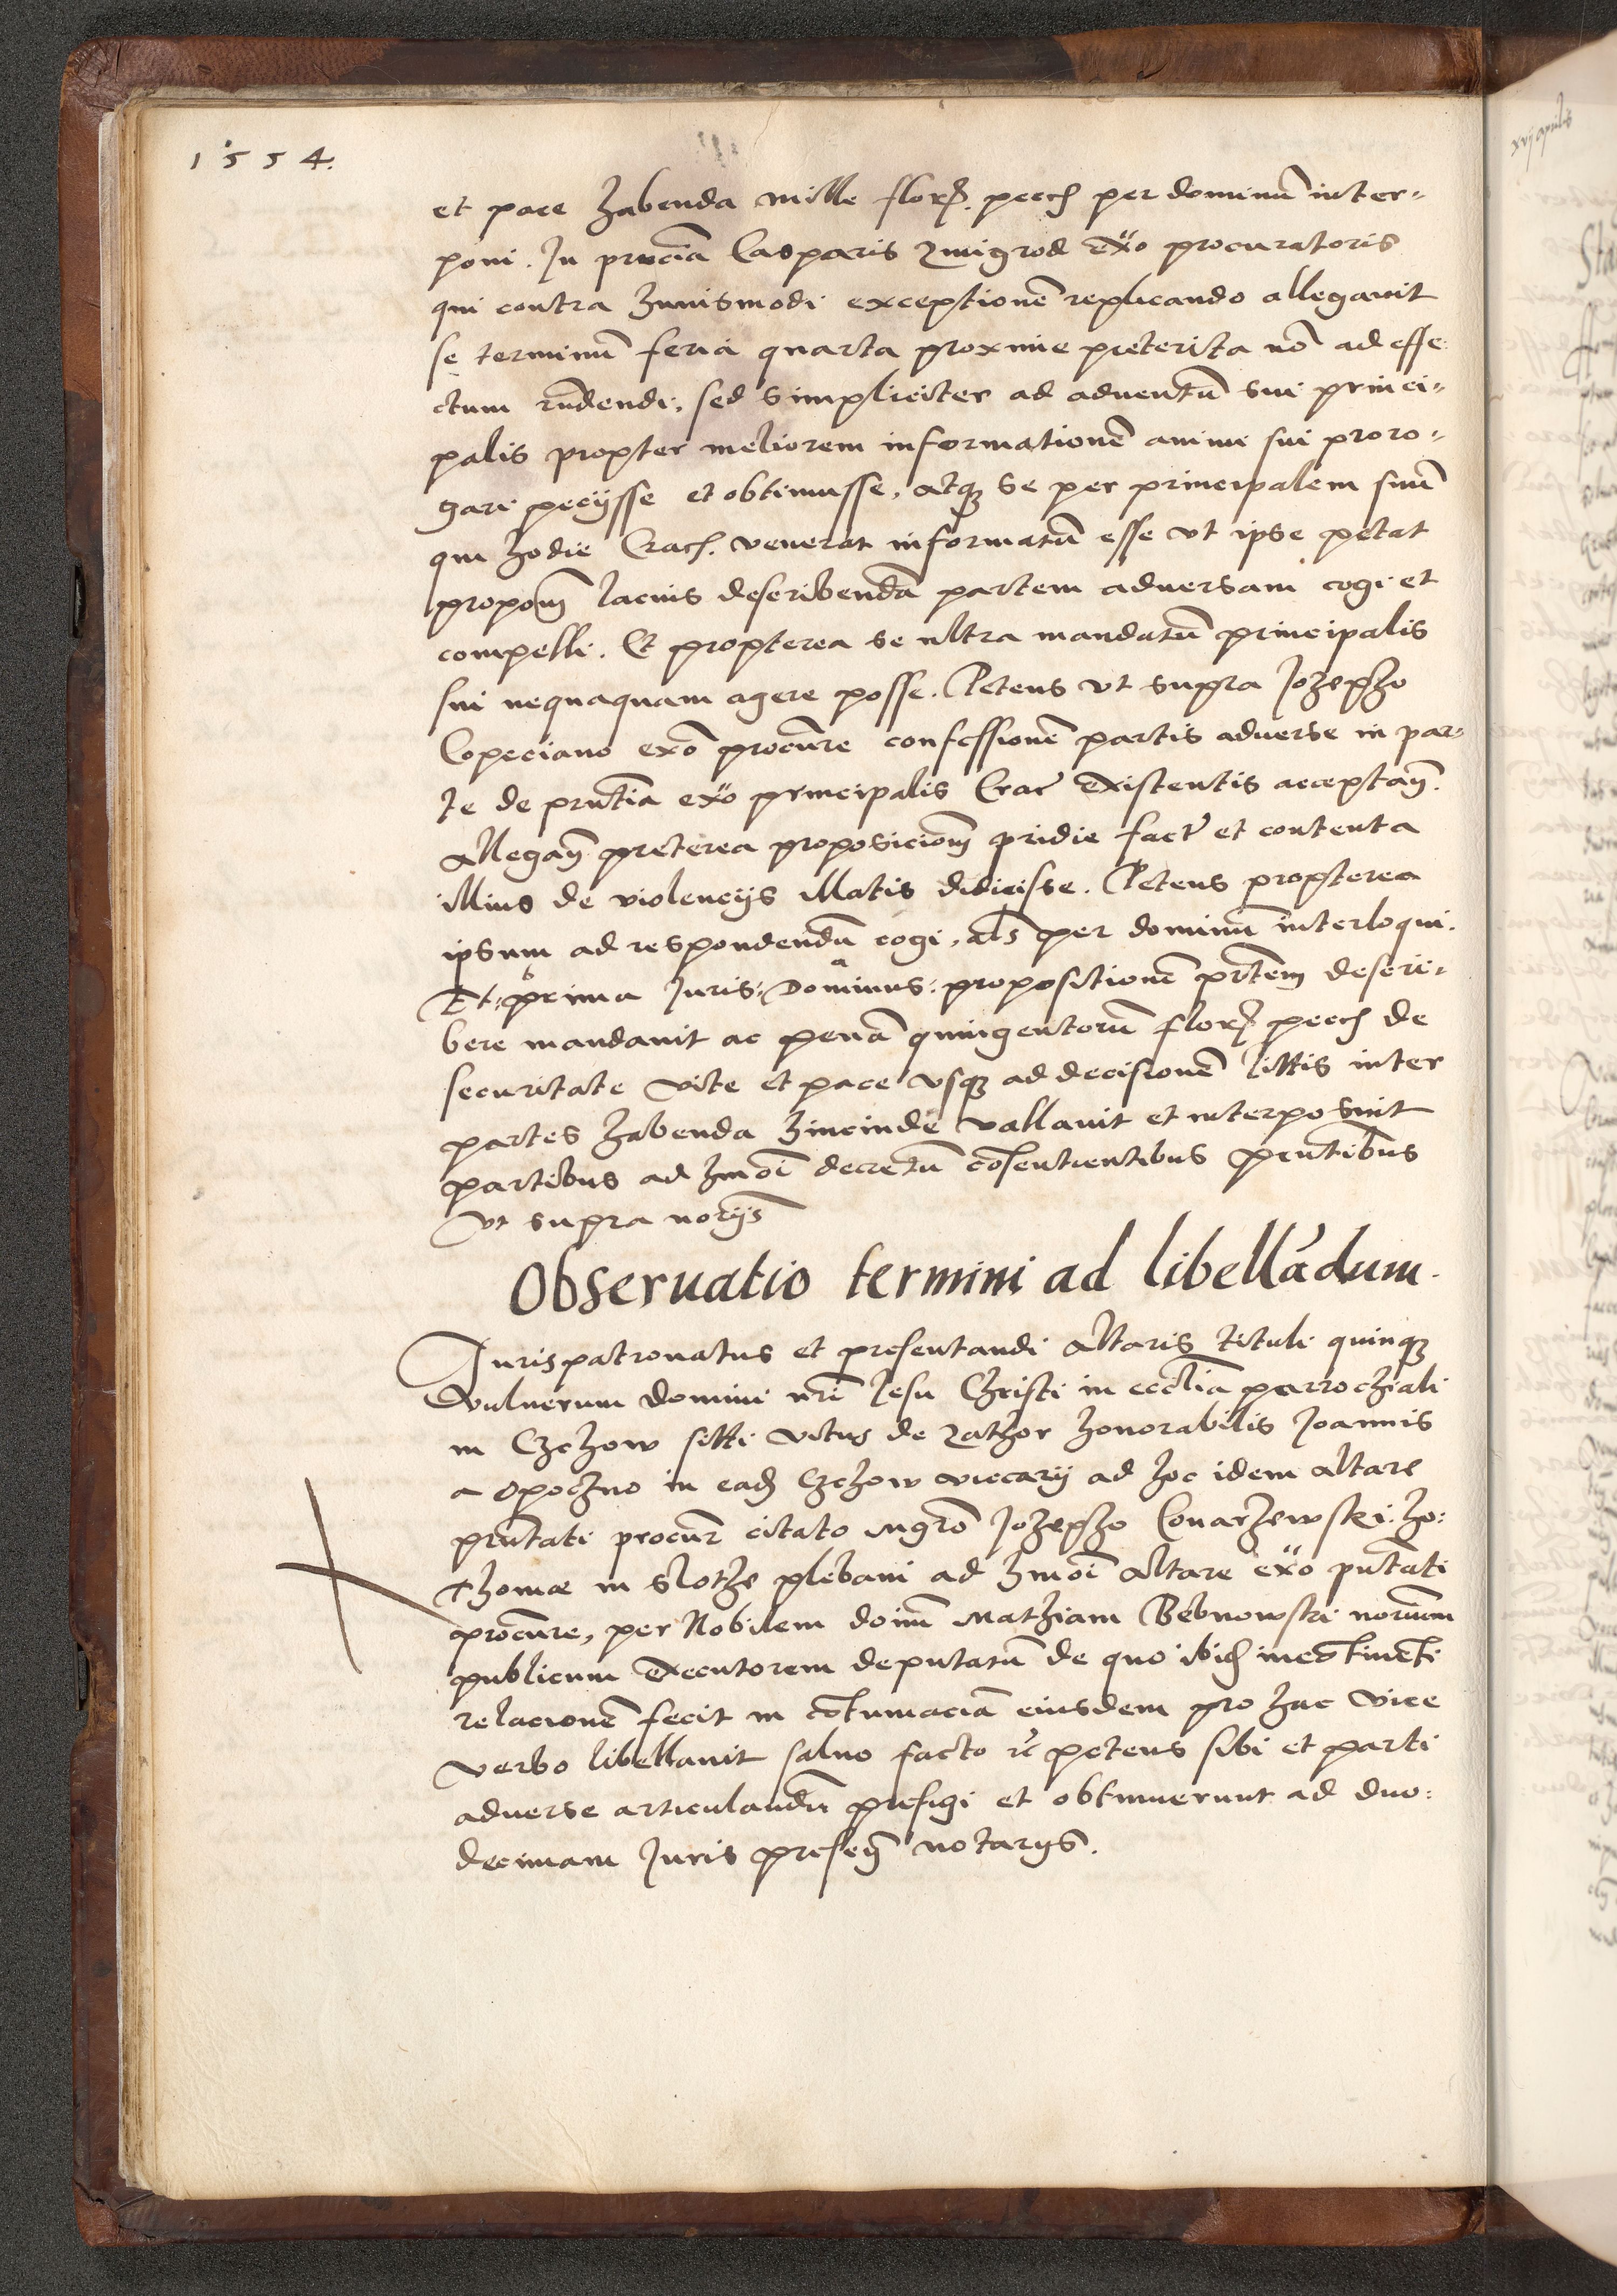 1554.
et pace habenda mille florз. pecch per dominū inter-
poni. In pñcia Casparis Zmigrod exo procuratoris
qui contra huiusmodi exceptionē replicando allegauit
se terminū feria quarta proxime preterita nō ad effe
ctum rñdendi, sed simpliciter ad aduentū sui princi-
palis propter meliorem informationē animi sui proro-
gari pecijsse et obtinuisse, atqз se per principalem suū
qui hodie Crac. venerat informatū esse vt ipse petat
propoem lacius describendā partem aduersam cogi et
compelli. Et propterea se ultra mandatū principalis
sui nequaquam agere posse. Petens vt supra Jozepho
Copeciano exō procure confessionē partis aduerse in par-
te de pñtia exo principalis Crac existentis acceptañ.
Allegañ preterea proposicioem pridie fact et contenta
illius de violencijs illatis didicisse. Petens propterea
ipsum ad respondendū cogi, als per dominū interloqui.
Et: prima Juris: Dominus: propositionē pñtem descri-
bere mandauit ac penā quingentorū florз pecch de
securitate vite et pace vsqз ad decisionē littis inter
partes habenda hincinde vallauit et interposuit
partibus ad hmōi decretū cōsentientibus pñtibus
vt supra norijs
Obseruatio termini ad libellādum.
Jurispatronatus et presentandi altaris tituli quinqз
Vulnerum domini nri Jesu Christi in ecclīa parrochiali
in Czchow sitti Vitus de Zathor honorabilis Joannis
a Opoczno in eadз Czchow viccarij ad hoc idem altare
pñtati procur citato mgro Jozepho Conarzewski: ho:
Thomæ in Slothe plebani ad hmōi altare exo pñtati
procure, per Nobilem doīm Mathiam Bebnowski norium
publicum executorem deputatū de quo ibidз incōtineti
relacionē fecit in cōtumaciā eiusdem pro hac vice
verbo libellauit saluo facto rē petens sibi et parti
aduerse articulandū prefigi et obtinuerunt ad duo:
decimam Juris preseñ notarijs.